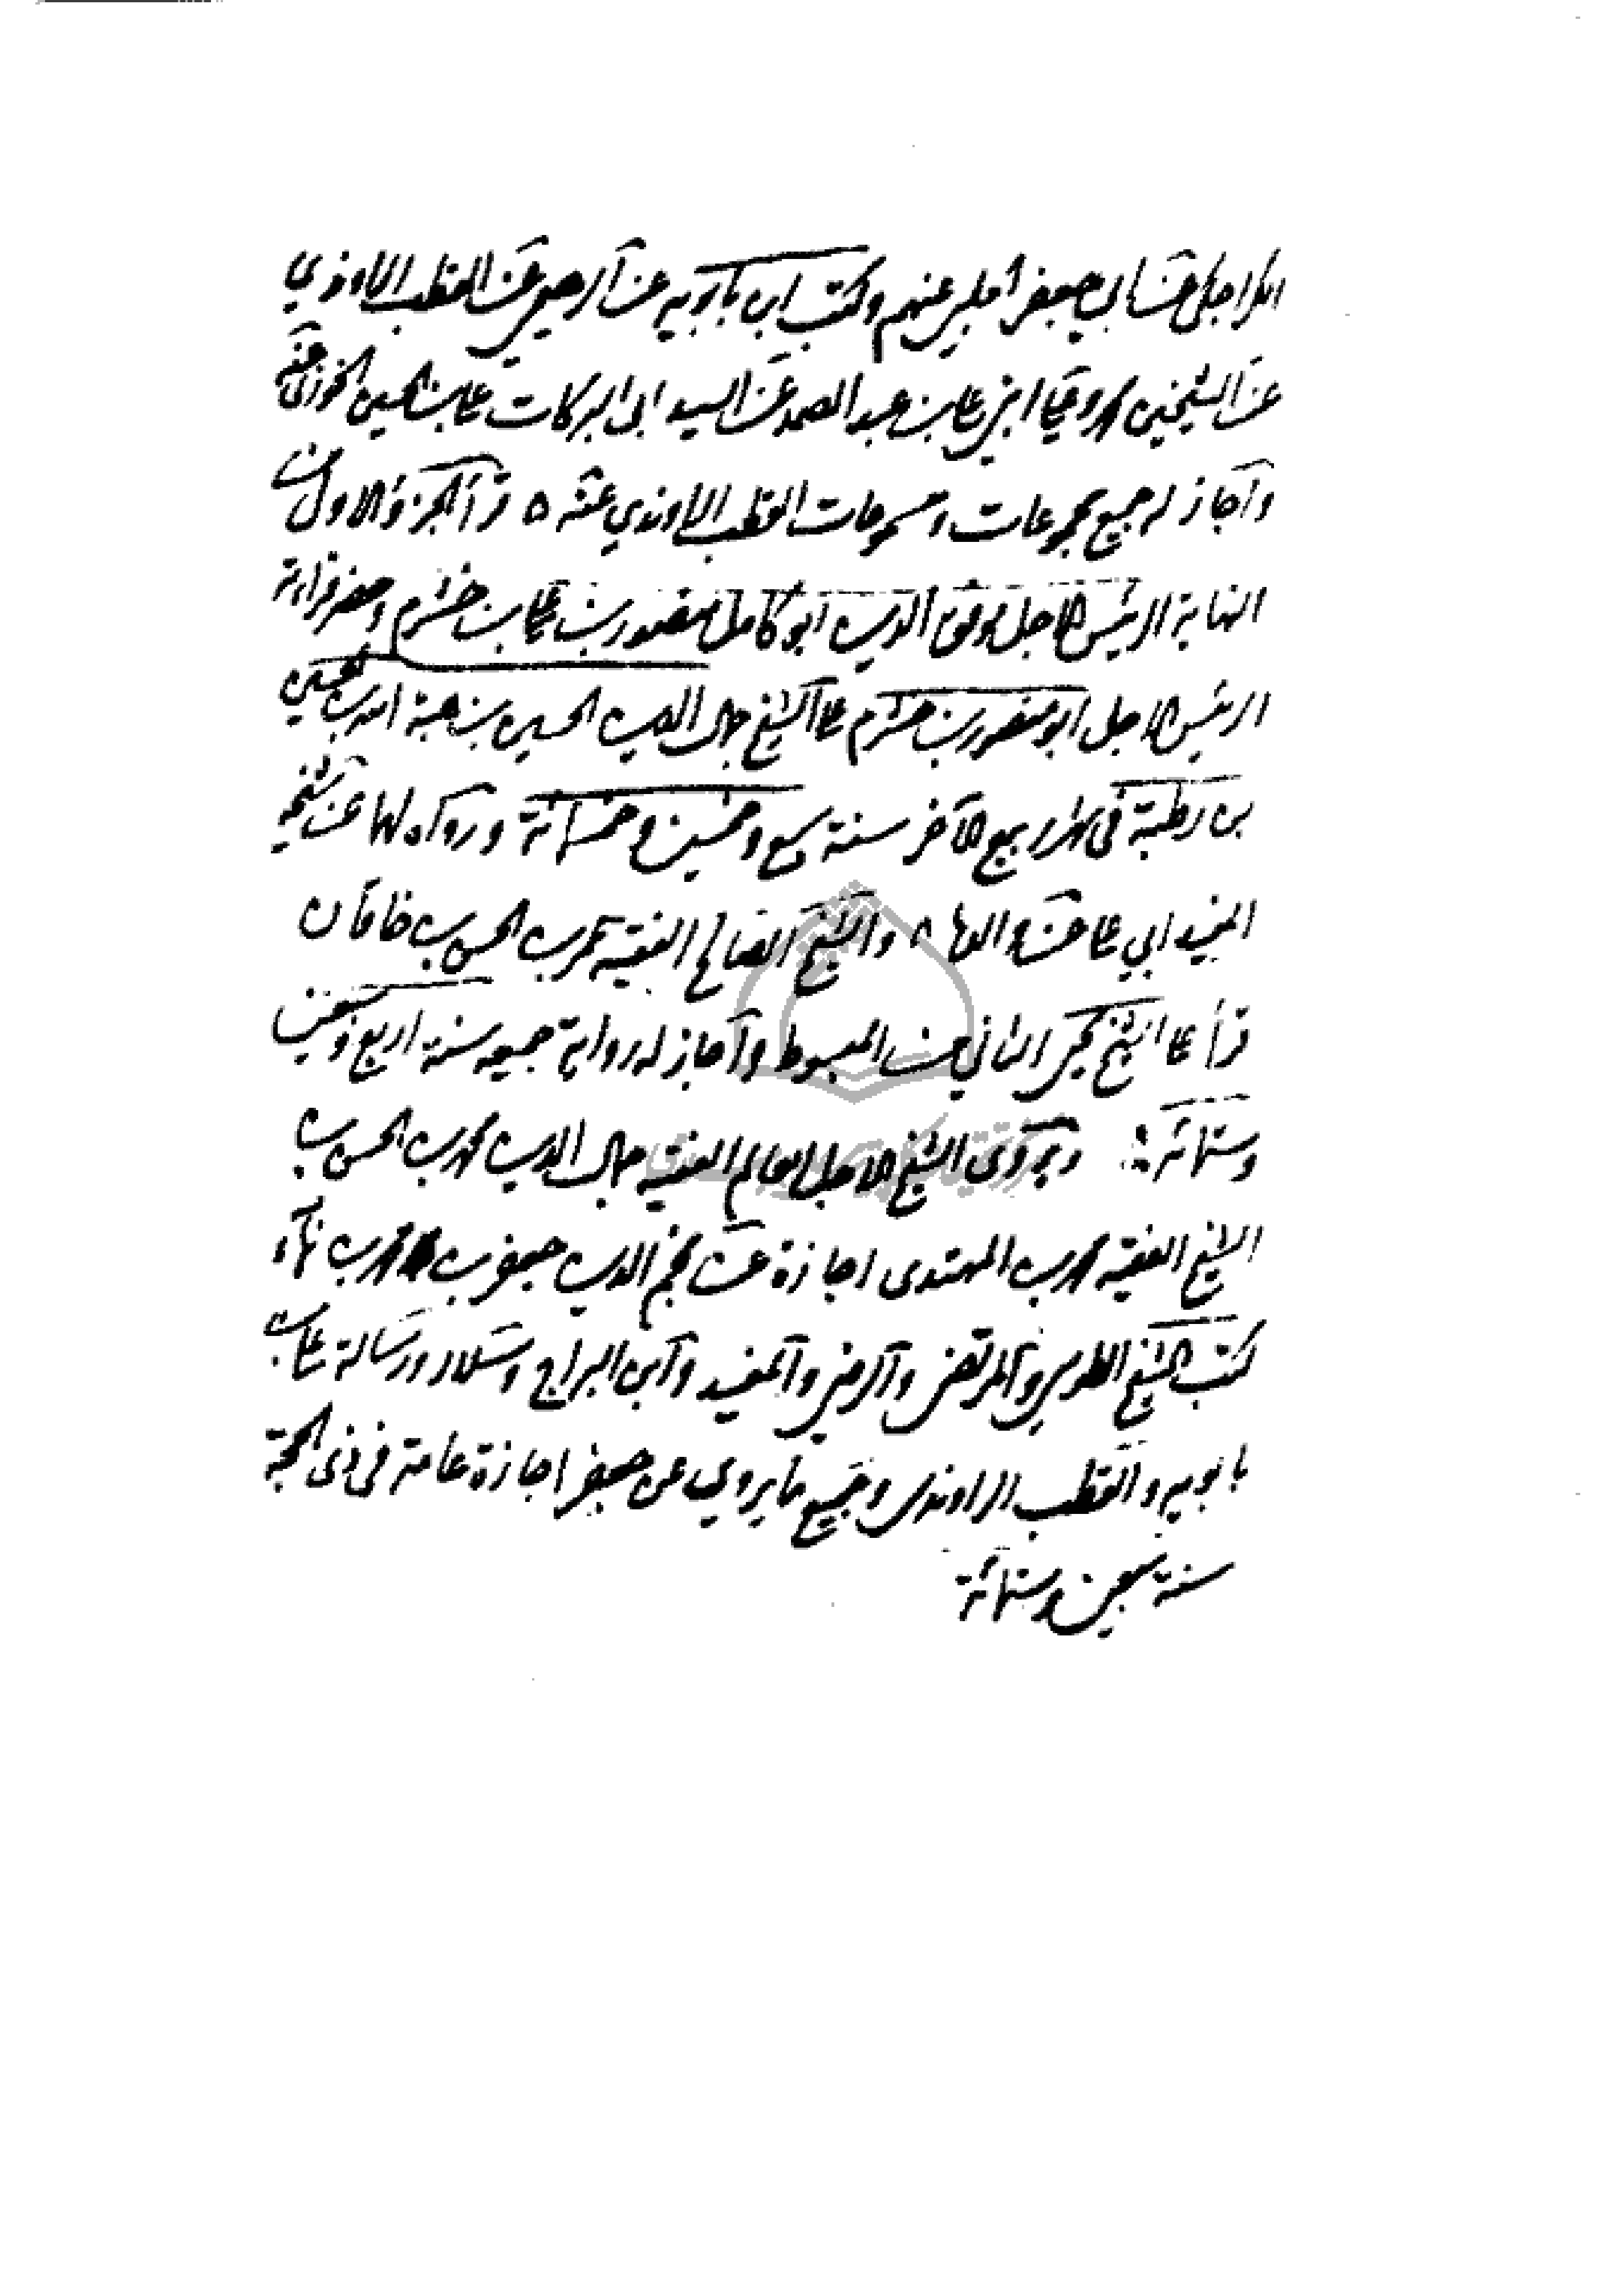 الكراجكي عن ابي جعفر الحلبي عنهم وكتب ابن بابويه عن الرضي عن القطب الراوندي
عن الشيخين محمد وعلي ابني علي بن عبد الصمد عن السيد ابى البركات علي بن الحسين الخوزي عنه
وآجاز له جميع مجموعات ومسموعات القطب الراوندي عنه ٥ قرأ الجزء الاول من
النهاية الرئيس الاجل موفق الدين ابو كامل منصور بن علي بن خشرم وحضر قراءته
الرئيس الاجل ابو منصور بن خشرم على الشيخ جمال الدين الحسين بن هبة الله بن الحسين
بن رطبة في شهر ربيع الآخر سنة سبع وخمسين وخمسمائة ورواه لها عن شيخه
المفيد ابي علي عن والده ٥ والشيخ الصالح الفقيه محمد بن الحسن بن خاقان
قرأ على الشيخ نجم الثاني من المبسوط وآجاز له رواية جميعه سنة اربع وسبعين
وستمائة ∴ ويروى الشيخ الاجل العالم الفقيه جمال الدين محمد بن الحسن بن
الشيخ الفقيه محمد بن المهتدى اجازة عن نجم الدين جعفر بن محمد بن نما
كتب الشيخ الطوسي والمرتضى والرضي والمفيد وآبن البراج وسلار ورسالة علي بن
بابويه والقطب الراوندى وجميع ما يروي عن جعفر اجازة عامة فى ذى الحجة
سنة سبعين وستمائة